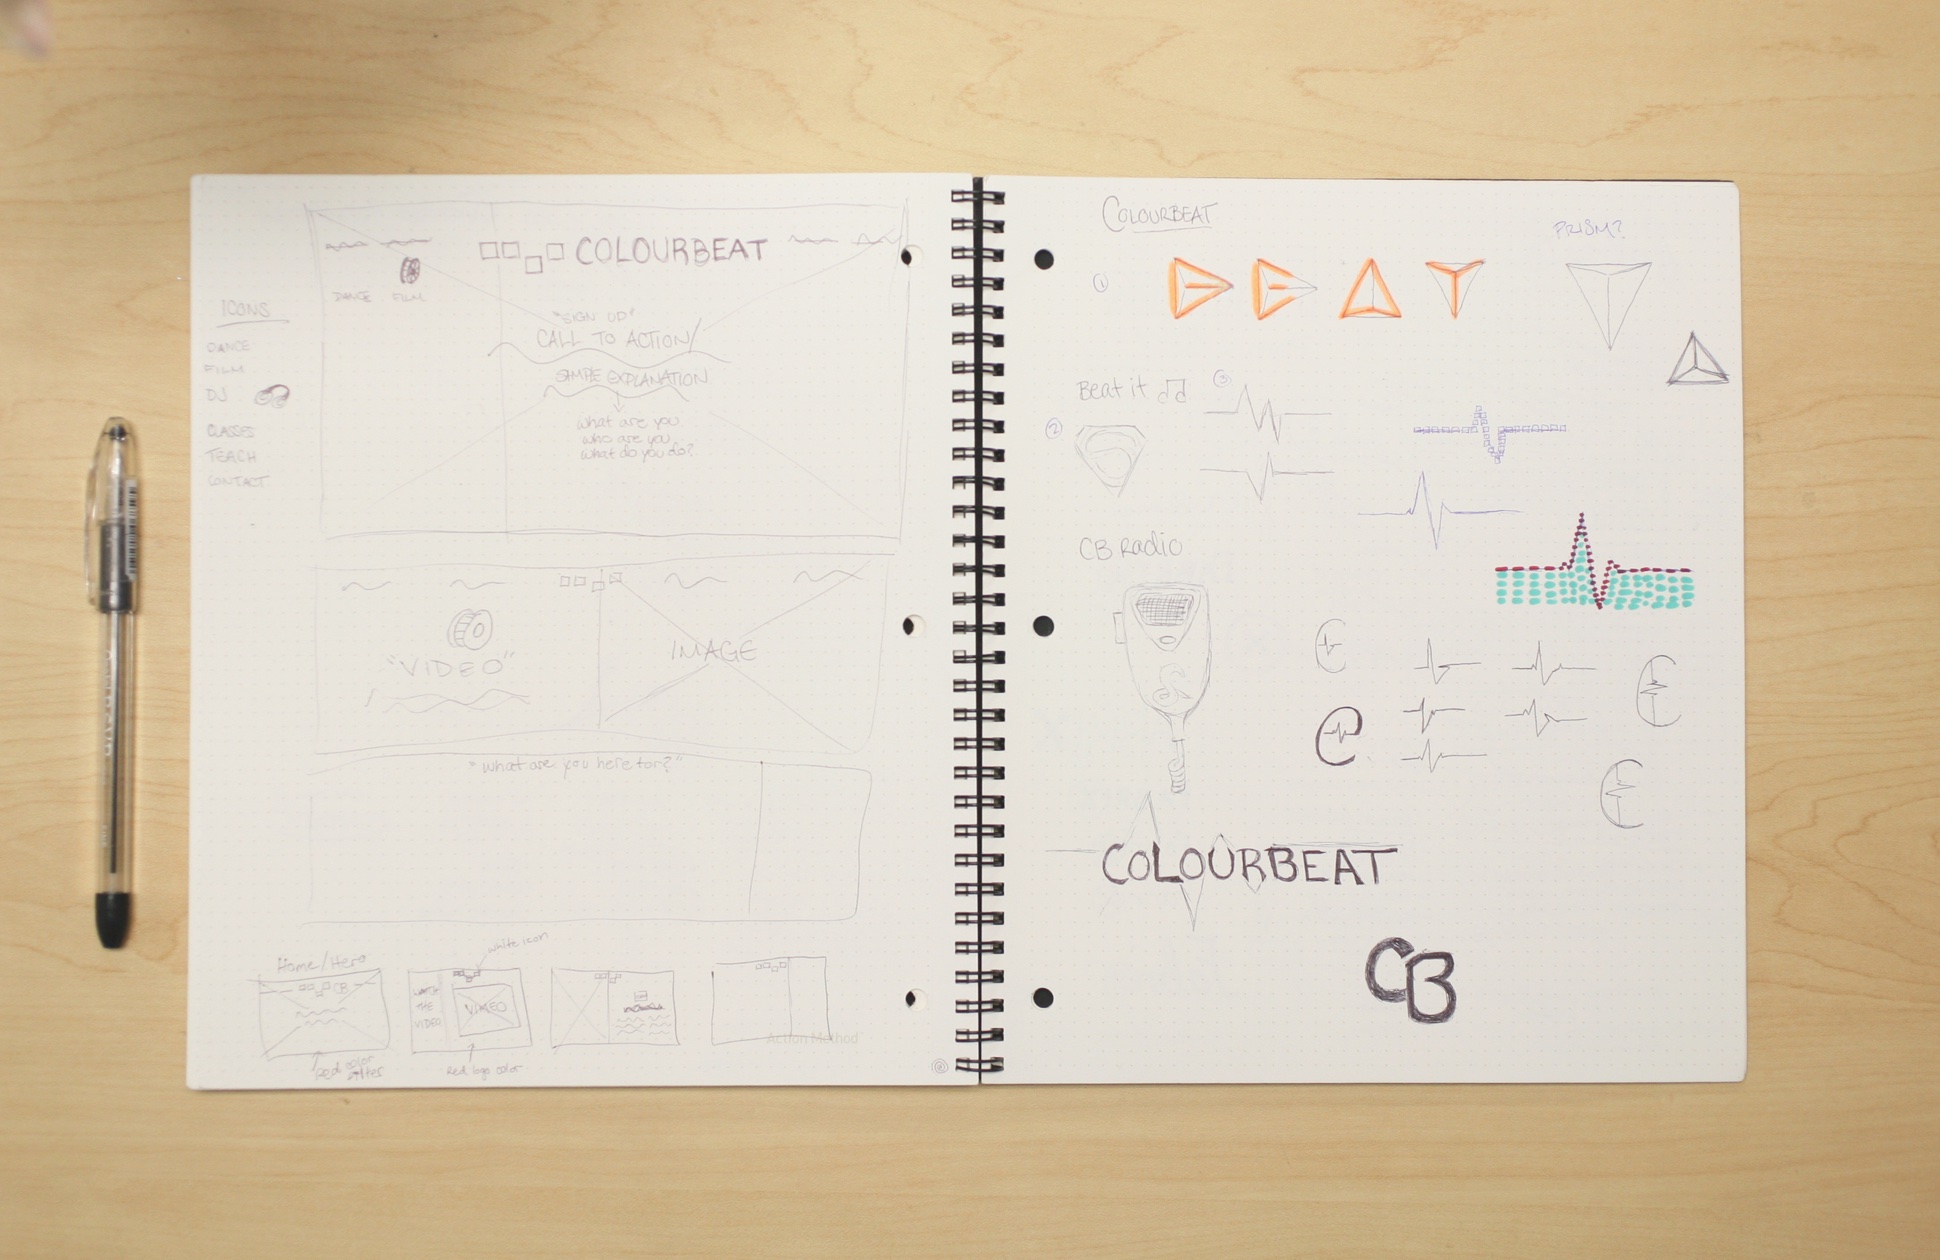 COLOURBEAT
DANCE FILM
ICONS
DANCE
FILM
DJ
CLASSES
TEACH
CONTACT
"SIGN UP"
CALL TO ACTION/
SIMPLE EXPLANATION
what are you
who are you
what do you do?
"VIDEO"
IMAGE
"what are you here for?"
white icon
Home/Hero
CB
WATCH
THE
VIDEO
VIDEO
Red color
filter
Red logo color
Action Method
COLOURBEAT
PRISM?
1
Beat it
3
2
CB Radio
COLOURBEAT
CB